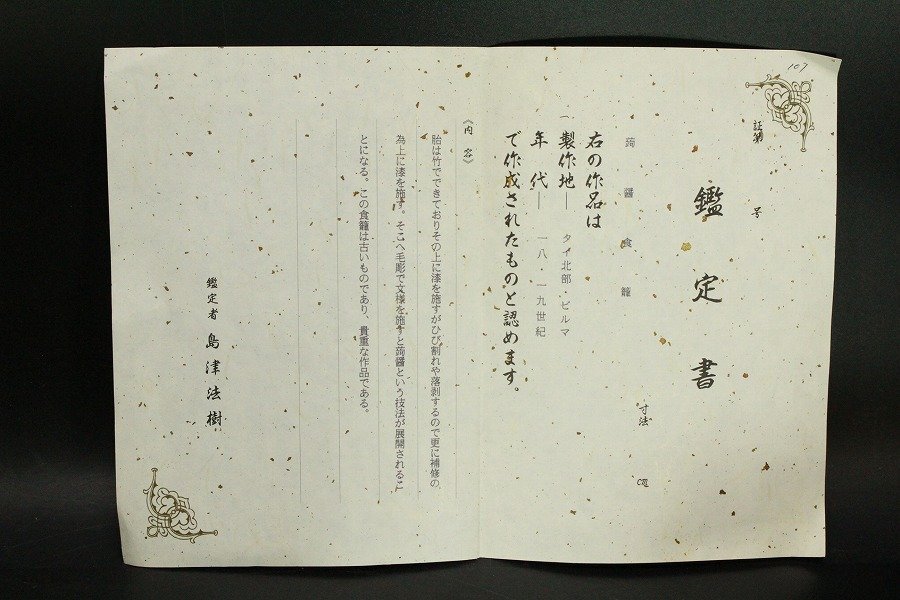 107
証第 号
鑑定書
蒟醤食籠
寸法 cm
右の作品は
一 製作地― タイ北部・ビルマ
年代― 一八・一九世紀
で作成されたものと認めます。
《内容》
胎は竹でできておりその上に漆を施すがひび割れや落剥するので更に補修の
為上に漆を施す。そこへ毛彫で文様を施すと蒟醤という技法が展開されるこ
とになる。この食籠は古いものであり、貴重な作品である。
鑑定者 島津法樹